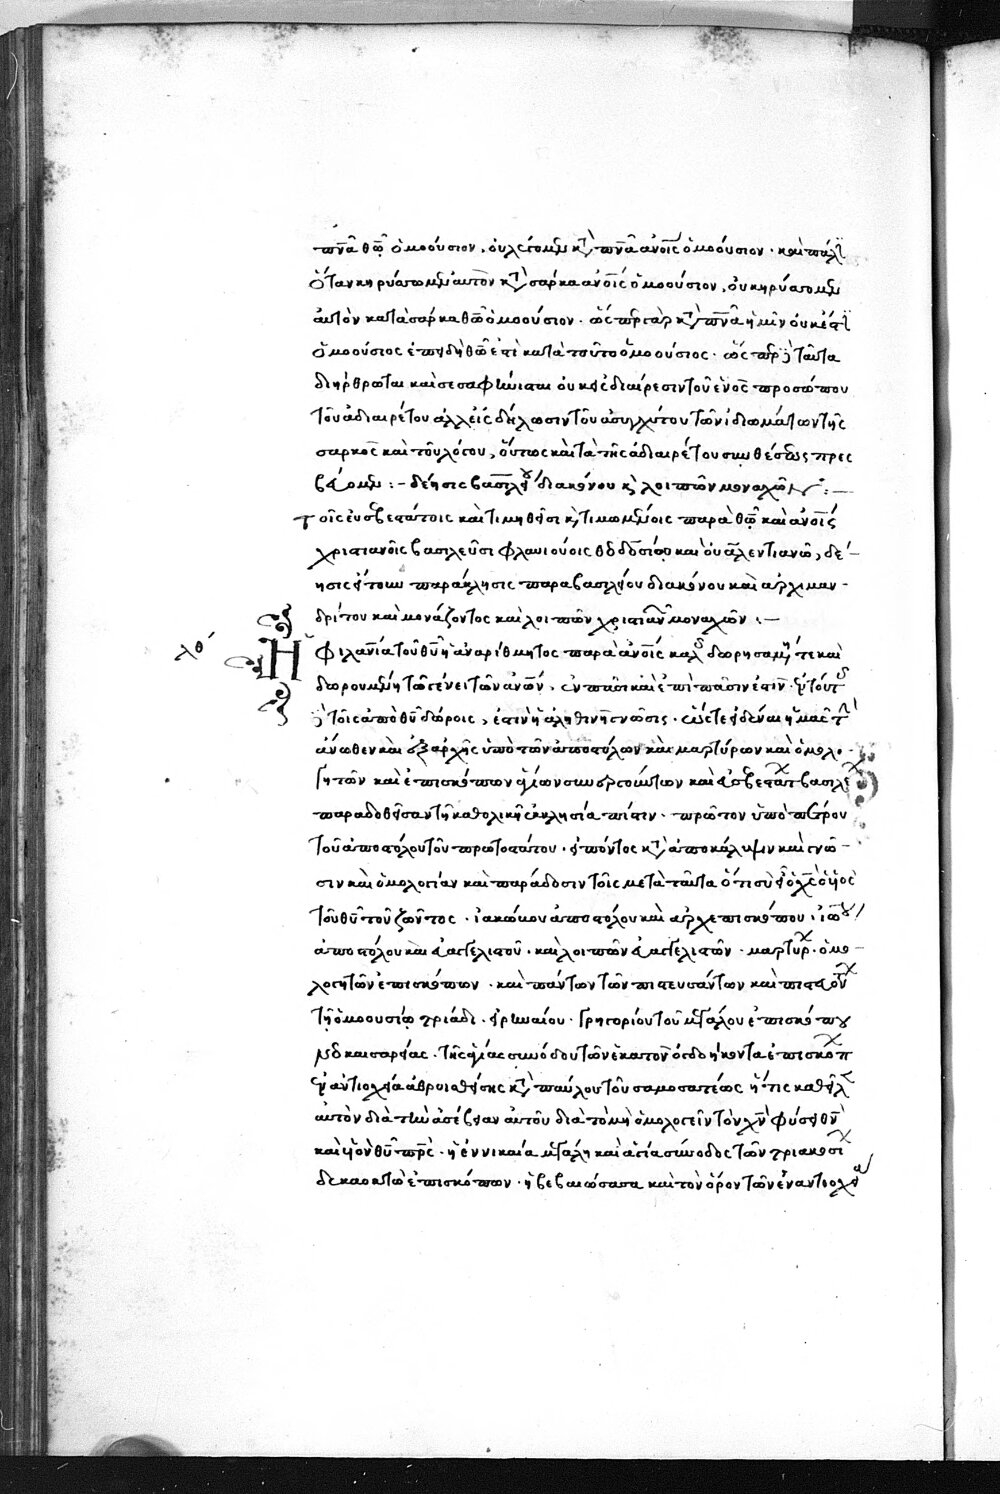 πν̅α θῶ ὁμοούσιον, οὐ λέγομεν κτ̀ πν̅α ἀνοις ὁμοούσιον · καὶ πάλϊ
ὅταν κηρύττομεν αὐτὸν κτ̀ σάρκα ἀνοις ὁμοούσιον, οὐ κηρύττομεν
αὐτὸν κατὰ σάρκα θῶ ὁμοούσιον · ὥσπερ γὰρ κτ̀ πν̅α ἡμῖν οὐκ ἔστϊ
ὁμοούσιος ἐπειδὴ θῶ ἐστὶ κατὰ τοῦτο ὁμοούσιος · ὥσπερ ταῦτα
διήρθρωται καὶ σεσαφήνισται οὐκ εἰς διαίρεσιν τοῦ ἑνὸς προσώπου
τοῦ ἀδιαιρέτου ἀλλ' εἰς δήλωσιν τοῦ ἀσυγχύτου τῶν ἰδιωμάτων τῆς
σαρκὸς καὶ τοῦ λόγου, οὕτως καὶ τὰ τῆς ἀδιαιρέτου συνθέσεως πρεσ
βεύομεν :- δέησις βασιλείου διακόνου κ̀ λοιπῶν μοναχῶν :—
τοῖς εὐσεβεστάτοις καὶ τιμηθεῖσι κ̀ τιμωμένοις παρὰ θῶ καὶ ἀνοις
χριστιανοῖς βασιλεῦσι φλαυιούοις θεοδοσίου καὶ οὐαλεντιανῶ, δέ-
ησις ἤτουν παράκλησις παρὰ βασιλείου διακόνου καὶ ἀρχιμαν-
δρίτου καὶ μονάζοντος καὶ λοιπῶν χριστιαν μοναχῶν :—
λθ΄ Η φιλανια τοῦ θυ ἡ ἀναρίθμητος παρὰ ἀνοις καλ δωρησαμέν τε καὶ
δωρουμένη τῶ γένει τῶν ἀνων, ἐν πᾶσι καὶ ἐπὶ πᾶσιν ἐστὶν · ἐν τούτ
τοῖς ἀπὸ θυ δώροις, ἐστὶν ἡ ἀληθινὴ γνῶσις · ὥστε εἰδέναι ἡμᾶς τ
ἄνωθεν καὶ ἐξ ἀρχῆς ὑπὸ τῶν ἀποστόλων καὶ μαρτύρων καὶ ὁμολο-
γητῶν καὶ ἐπισκόπων ἁγίων συνεργούντων καὶ εὐσεβεστάτ βασιλε
παραδοθεῖσαν τῆ καθολικῆ ἐκκλησία πίστιν · πρῶτον ὑπὸ πέτρου
τοῦ ἀποστόλου τοῦ πρωτοτάτου · εἰπόντος κτ̀ ἀποκάλυψιν καὶ γνῶ-
σιν καὶ ὁμολογίαν καὶ παράδοσιν τοῖς μετὰ ταῦτα ὅτι σὺ εἶ ὁ χς ὁ υἱὸς
τοῦ θυ τοῦ ζῶντος · ἰακώμου ἀποστόλου καὶ ἀρχιεπισκόπου · ἰω
ἀποστόλου καὶ εὐαγγελιστοῦ · καὶ λοιπῶν εὐαγγελιστῶν · μαρτύρ · ὁμο-
λογητῶν ἐπισκόπων · καὶ πάντων τῶν πιστευσάντων καὶ πιστευόντ
τῆ ὁμοουσίω τριάδι · εἰρηναίου · γρηγορίου τοῦ μεγάλου ἐπισκόπου
νεοκαισαρείας · τῆς ἁγίας συνόδου τῶν ἑκατὸν ὀγδοήκοντα ἐπισκόπ
ἐν ἀντιοχεία ἀθροισθείσης κτ̀ παύλου τοῦ σαμοσατέως ἥτις καθεῖλ
αὐτὸν διὰ τὴν ἀσέβειαν αὐτοῦ διὰ τὸ μὴ ὁμολογεῖν τὸν χν φύσει θν
καὶ υἱὸν θυ πρς · ἡ ἐν νικαία μεγάλη καὶ ἁγία σύνοδος τῶν τριακοσί
δεκαοκτὼ ἐπισκόπων · ἡ βεβαιώσασα καὶ τὸν ὅρον τῶν ἐν ἀντιοχεία